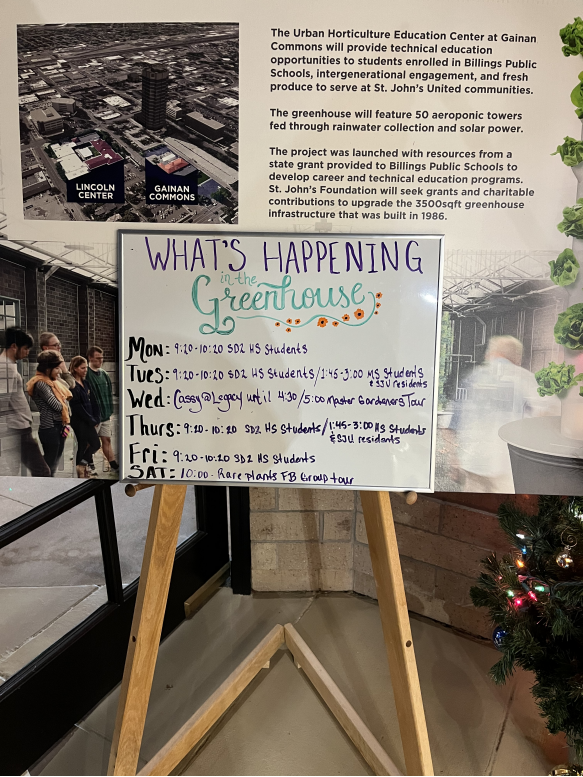 The Urban Horticulture Education Center at Gainan
Commons will provide technical education
opportunities to students enrolled in Billings Public
Schools, intergenerational engagement, and fresh
produce to serve at St. John's United communities.
The greenhouse will feature 50 aeroponic towers
fed through rainwater collection and solar power.
The project was launched with resources from a
state grant provided to Billings Public Schools to
develop career and technical education programs.
St. John's Foundation will seek grants and charitable
contributions to upgrade the 3500sqft greenhouse
infrastructure that was built in 1986.
LINCOLN
CENTER
GAINAN
COMMONS
WHAT'S HAPPENING
in the
Greenhouse
Mon: 9:20-10:20 SD2 HS Students
Tues: 9:20-10:20 SD2 HS Students/1:45-3:00 MS Students
& SJU residents
Wed: Cassy@Legacy until 4:30/5:00 Master Gardeners Tour
Thurs: 9:20-10:20 SD2 HS Students/1:45-3:00 MS Students
& SJU residents
Fri: 9:20-10:20 SD2 HS Students
SAT: 10:00- Rare Plants FB Group tour